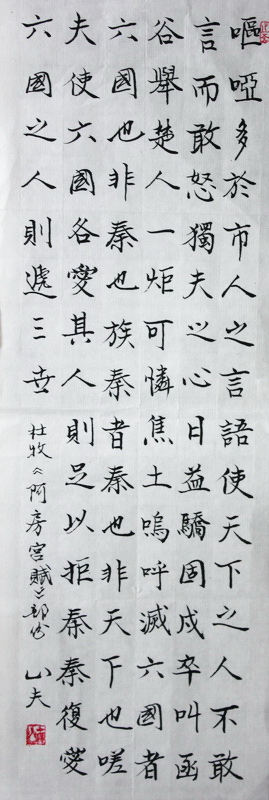 嘔啞多於市人之言語使天下之人不敢
言而敢怒獨夫之心日益驕固戍卒叫函
谷舉楚人一炬可憐焦土嗚呼滅六國者
六國也非秦也族秦者秦也非天下也嗟
夫使六國各愛其人則足以拒秦秦復愛
六國之人則遞三世
杜牧《阿房宮賦》部份
山夫